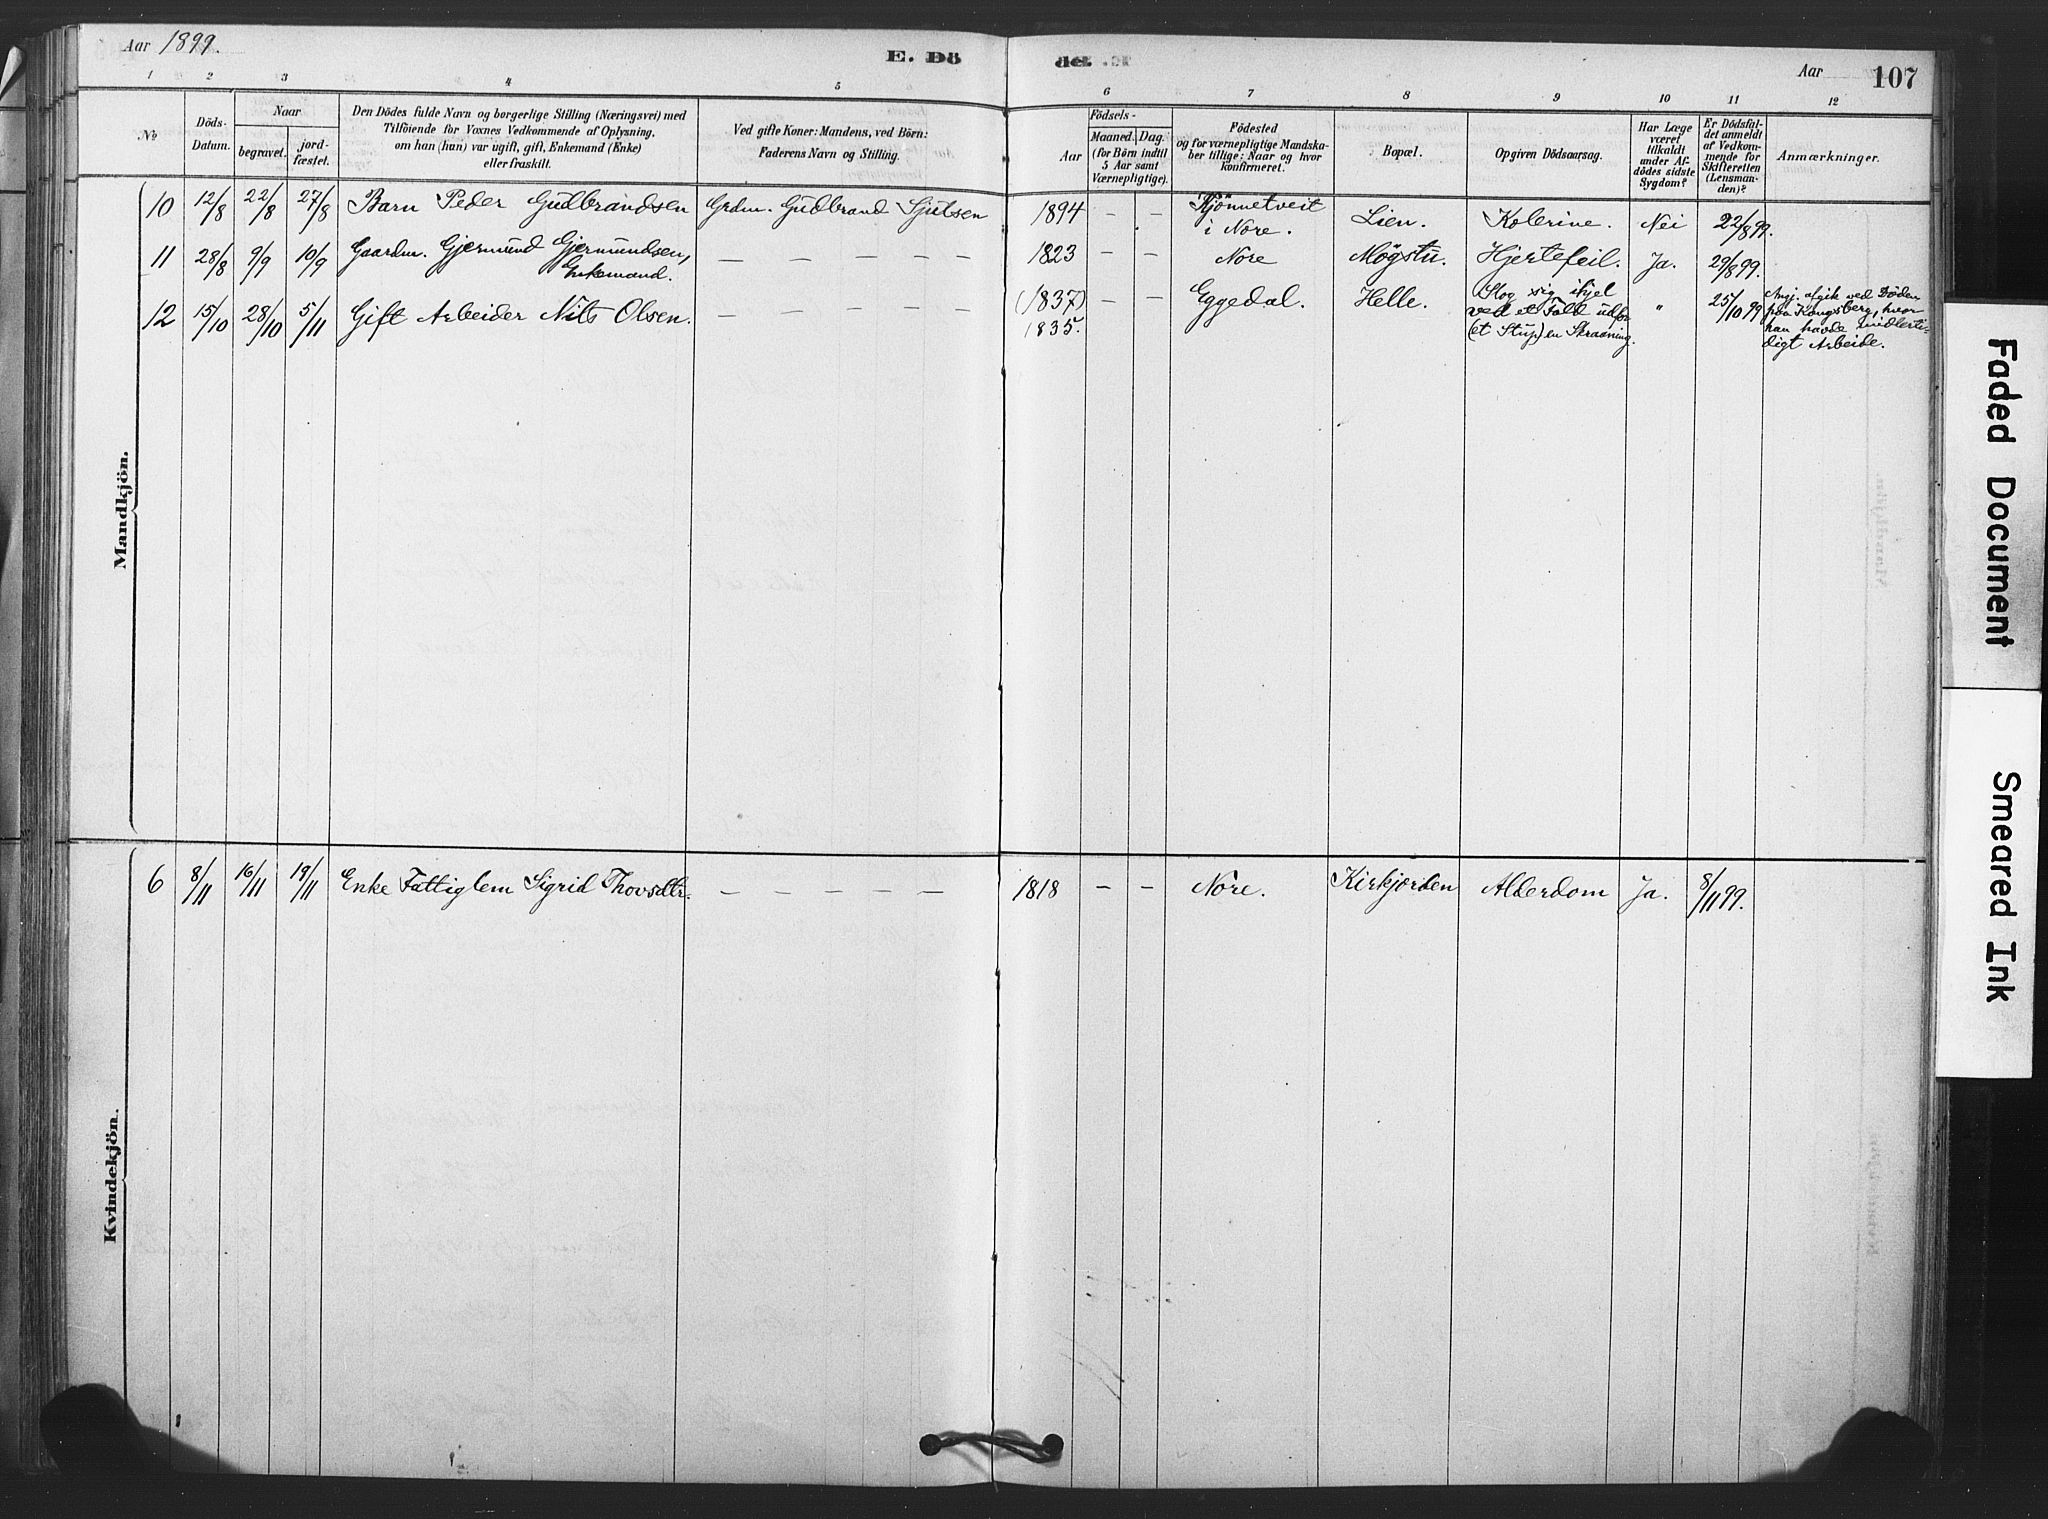 Aar 1899.
E. Dö
det.
Aar
107
1 2 3 4 5 6 7 8 9 10 11 12
No
Döds-
Datum.
Naar
begravet.
jord-
fæstet.
Den Dödes fulde Navn og borgerlige Stilling (Næringsvei) med
Tilföiende for Voxnes Vedkommende af Oplysning,
om han (hun) var ugift, gift, Enkemand (Enke)
eller fraskilt.
Ved gifte Koner: Mandens, ved Börn:
Faderens Navn og Stilling.
Födsels-
Aar
Maaned.
Dag.
(for Börn indtil
5 Aar samt
Værnepligtige).
Födested
og for værnepligtige Mandska-
ber tillige: Naar og hvor
konfirmeret.
Bopæl.
Opgiven Dödsaarsag.
Har Læge
været
tilkaldt
under Af-
dödes sidste
Sygdom?
Er Dödsfal-
det anmeldt
af Vedkom-
mende for
Skifteretten
(Lensman-
den)?
Anmærkninger.
Mandkjön.
10 12/8 22/8 27/8 Barn Peder Gudbrandsen Grdm. Gudbrand Sjulsen 1894 – – Kjönnetveit
i Nore. Lien. Kolerine. Nei 22/8 99.
11 28/8 9/9 10/9 Gaardm. Gjermund Gjermundsen,
Enkemand. – – – – – 1823 – – Nore Mögstu. Hjertefeil. Ja. 29/8 99.
12 15/10 28/10 5/11 Gift Arbeider Nils Olsen. – – – – – (1837)
1835. – – Eggedal. Helle. Slog sig ihjel
ved et Fald udfor
(et Stup) en Skraaning. " 25/10 99 Ang. afgik ved Döden
paa Kongsberg, hvor
han havde midlerti-
digt Arbeide.
Kvindekjön.
6 8/11 16/11 19/11 Enke Fattiglem Sigrid Thovsdtr. – – – – – 1818 – – Nore. Kirkjorden Alderdom Ja. 8/11 99.
Faded Document
Smeared Ink